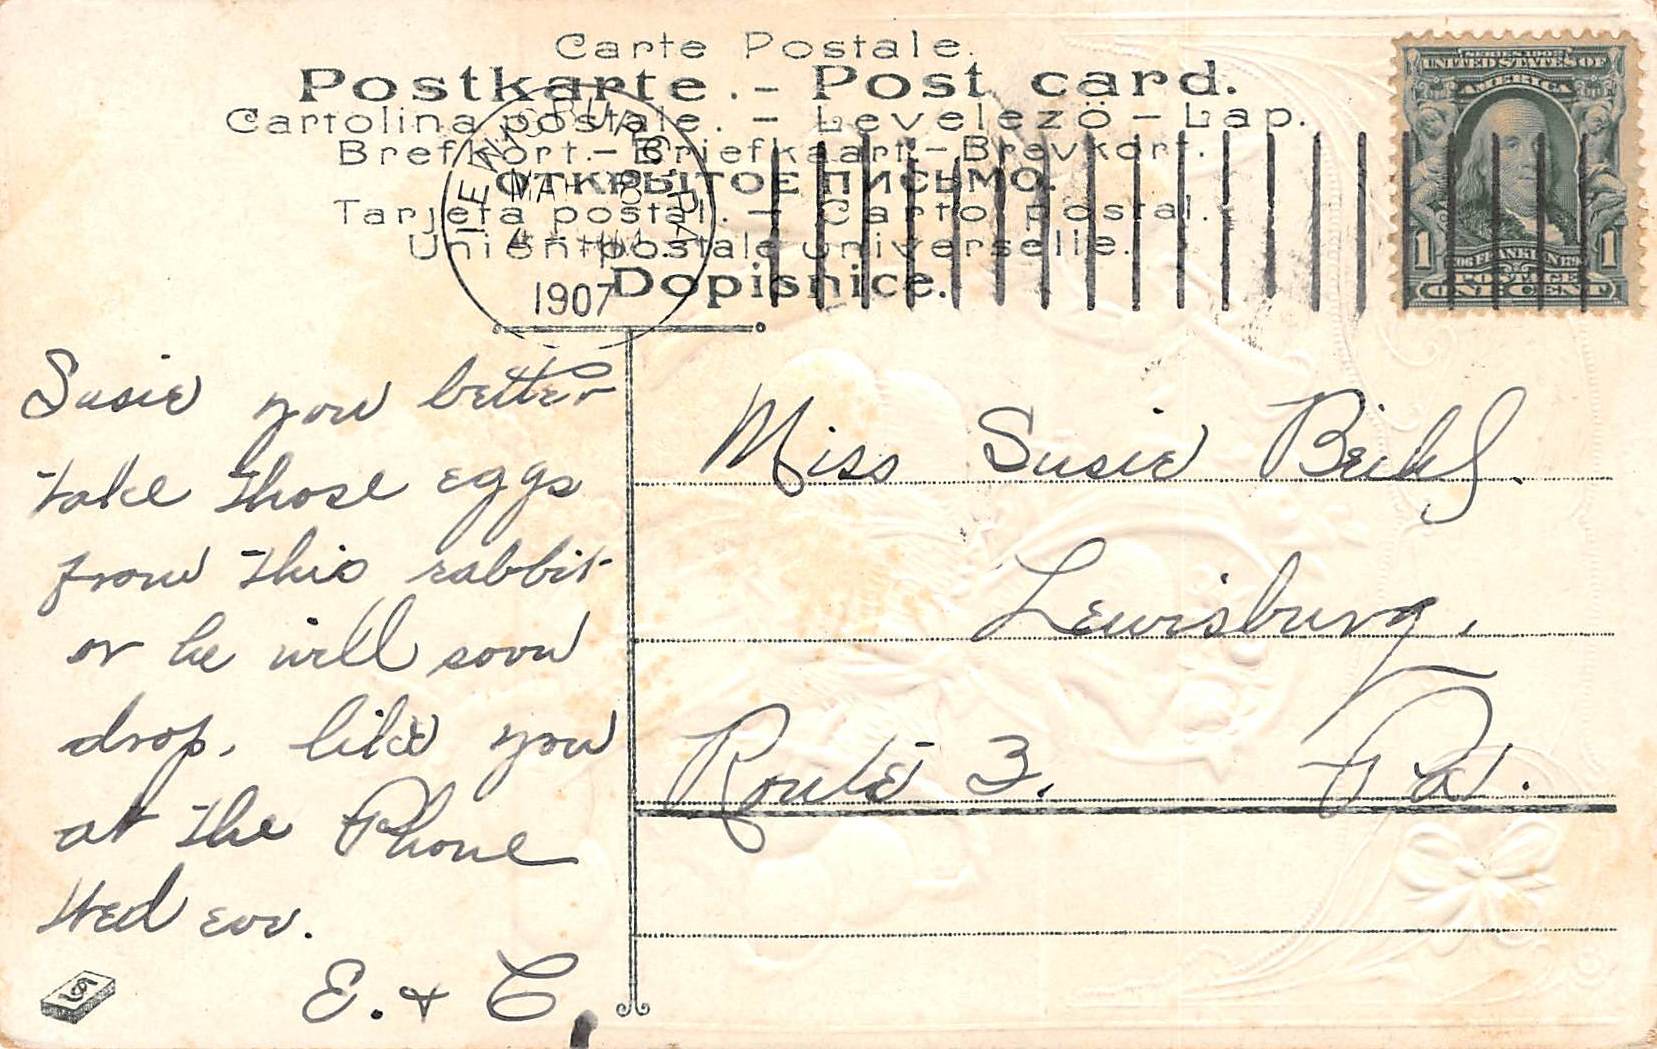 Carte Postale.
Postkarte. - Post card.
Cartolina postale. - Levelezö-Lap.
Brefkort. - Briefkaart - Brevkort.
ОТКРЫТОЕ ПИСЬМО.
Tarjeta postal. - Carto postal.
Unión postale universelle.
Dopisnice.
MAR 8
1907
SERIES 1902
UNITED STATES OF
AMERICA
FRANKLIN
POSTAGE
1 ONE CENT 1
Susie you better
take those eggs
from this rabbit
or he will soon
drop. like you
at the Phone
Wed eve.
E. & C,
Miss Susie
Lewisburg,
Route 3. Pa.